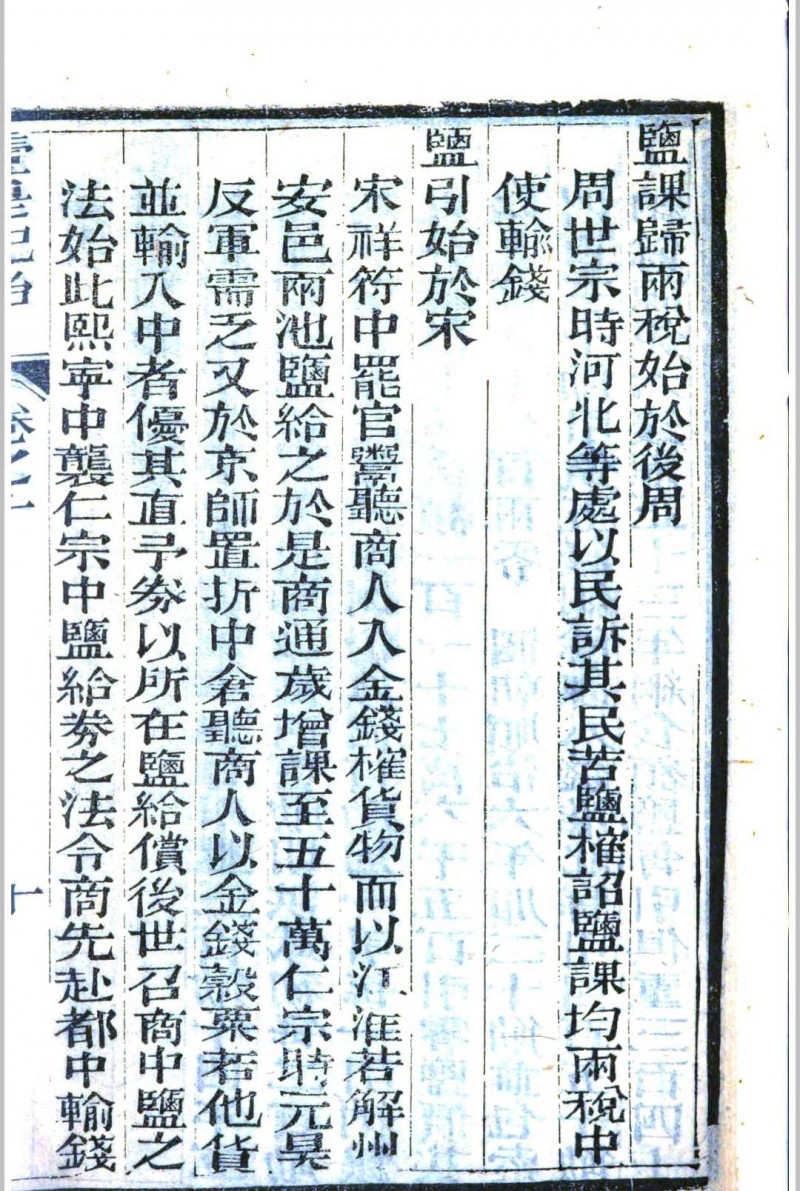 鹽課歸兩稅始於後周
周世宗時河北等處以民訴其民苦鹽榷詔鹽課均兩稅中
使輸錢
鹽引始於宋
宋祥符中罷官鬻聽商人入金錢榷貨物而以江淮若解州
安邑兩池鹽給之於是商通歲增課至五十萬仁宗時元昊
反軍需乏又於京師置折中倉聽商人以金錢穀粟若他貨
並輸入中者優其直予券以所在鹽給償後世召商中鹽之
法始此熙寧中襲仁宗中鹽給券之法令商先赴都中輸錢
卷之
十